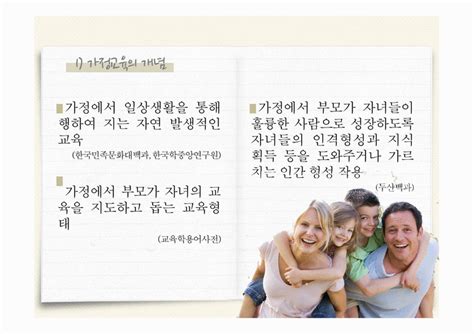 1) 가정교육의 개념
가정에서 일상생활을 통해
행하여 지는 자연 발생적인
교육
(한국민족문화대백과, 한국학중앙연구원)
가정에서 부모가 자녀의 교
육을 지도하고 돕는 교육형
태
(교육학용어사전)
가정에서 부모가 자녀들이
훌륭한 사람으로 성장하도록
자녀들의 인격형성과 지식
획득 등을 도와주거나 가르
치는 인간 형성 작용
(두산백과)